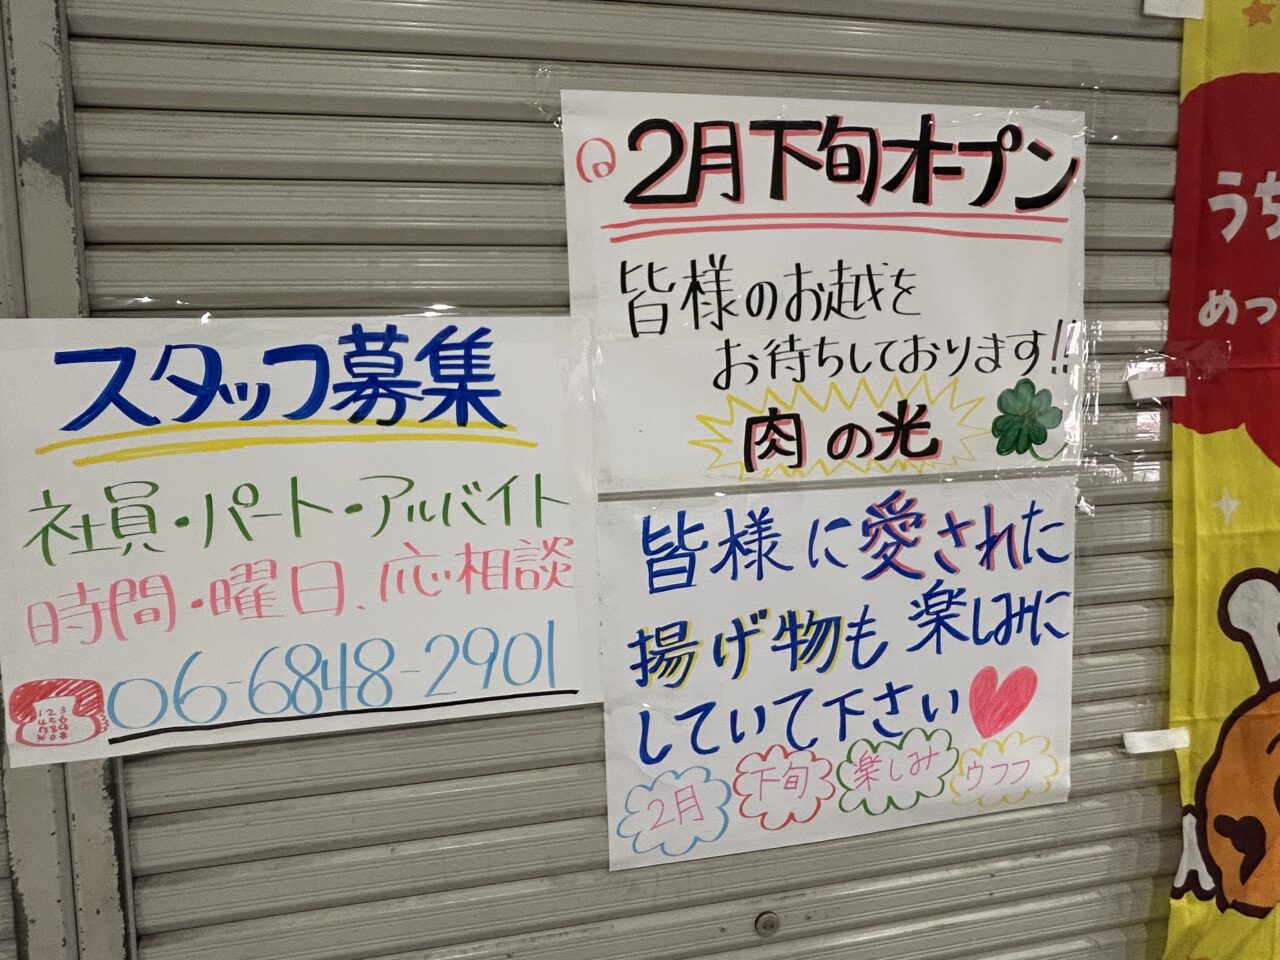 2月下旬オープン
皆様のお越を
お待ちしております!!
肉の光
スタッフ募集
社員・パート・アルバイト
時間・曜日、応相談
06-6848-2901
1 2 3
4 5 6
7 8 9
* 0 #
皆様に愛された
揚げ物も楽しみに
していて下さい
2月 下旬 楽しみ ウフフ
うち
めっ